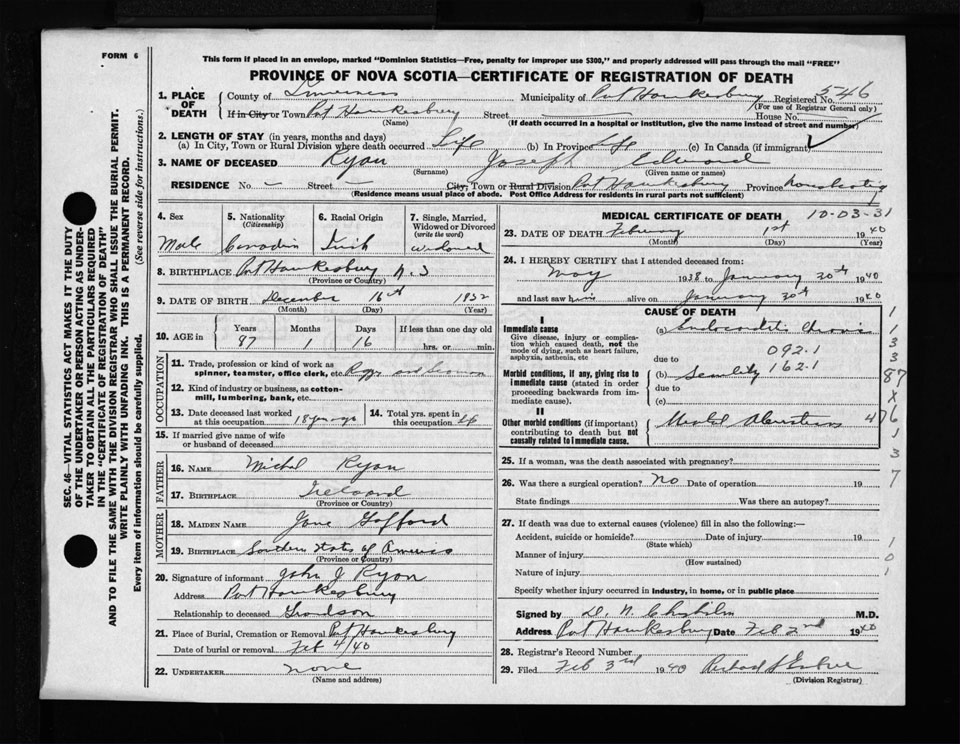 FORM 6
This form if placed in an envelope, marked "Dominion Statistics—Free, penalty for improper use $300," and properly addressed will pass through the mail "FREE"
PROVINCE OF NOVA SCOTIA—CERTIFICATE OF REGISTRATION OF DEATH
1. PLACE OF DEATH
County of Inverness Municipality of Port Hawkesbury Registered No. 546
(For use of Registrar General only)
If in City or Town Port Hawkesbury Street House No.
(Name) (If death occurred in a hospital or institution, give the name instead of street and number)
2. LENGTH OF STAY (in years, months and days)
(a) In City, Town or Rural Division where death occurred Life (b) In Province Life (c) In Canada (if immigrant)
3. NAME OF DECEASED Ryan Joseph Edward
(Surname) (Given name or names)
RESIDENCE No. – Street – City, Town or Rural Division Port Hawkesbury Province Nova Scotia
(Residence means usual place of abode. Post Office Address for residents in rural parts not sufficient)
4. Sex 5. Nationality (Citizenship) 6. Racial Origin 7. Single, Married, Widowed or Divorced (write the word)
Male Canadian Irish widowed
8. BIRTHPLACE Port Hawkesbury N.S
(Province or Country)
9. DATE OF BIRTH December 16th 1852
(Month) (Day) (Year)
10. AGE in Years Months Days If less than one day old
87 1 16 hrs. or min.
OCCUPATION
11. Trade, profession or kind of work as
spinner, teamster, office clerk, etc. Rigger and Seaman
12. Kind of industry or business, as cotton-
mill, lumbering, bank, etc.
13. Date deceased last worked at this occupation 18 years ago 14. Total yrs. spent in this occupation
15. If married give name of wife
or husband of deceased
FATHER
16. NAME Michal Ryan
17. BIRTHPLACE Ireland
(Province or Country)
MOTHER
18. MAIDEN NAME Jane Gafford
19. BIRTHPLACE Southern States of America
(Province or Country)
20. Signature of informant John J Ryan
Address Port Hawkesbury
Relationship to deceased Grandson
21. Place of Burial, Cremation or Removal Port Hawkesbury
Date of burial or removal Feb 4/40
22. UNDERTAKER none
(Name and address)
MEDICAL CERTIFICATE OF DEATH 10-03-31
23. DATE OF DEATH February 1st 1940
(Month) (Day) (Year)
24. I HEREBY CERTIFY that I attended deceased from:
May 1938 to January 30th 1940
and last saw him alive on January 30th 1940
CAUSE OF DEATH
I
Immediate cause (a) Endocarditis Chronic
Give disease, injury or complica-
tion which caused death, not the
mode of dying, such as heart failure,
asphyxia, asthenia, etc
092.1
due to
Morbid conditions, if any, giving rise to
immediate cause (stated in order
proceeding backwards from im-
mediate cause).
(b) Senility 162.1
due to
(c)
II
Other morbid conditions (if important)
contributing to death but not
causally related to immediate cause.
Mental Aberations
1
1
3
3
87
X
47 6
1
3
7
25. If a woman, was the death associated with pregnancy?
26. Was there a surgical operation? No Date of operation 19
State findings Was there an autopsy?
27. If death was due to external causes (violence) fill in also the following:—
Accident, suicide or homicide? Date of injury 19
(State which)
Manner of injury
(How sustained)
Nature of injury
1
0
1
Specify whether injury occurred in industry, in home, or in public place
Signed by D. N. Chisholm M.D.
Address Port Hawkesbury Date Feb 2nd 1940
28. Registrar's Record Number
29. Filed Feb 3rd 1940 Richard
(Division Registrar)
SEC. 46—VITAL STATISTICS ACT MAKES IT THE DUTY
OF THE UNDERTAKER OR PERSON ACTING AS UNDER-
TAKER TO OBTAIN ALL THE PARTICULARS REQUIRED
IN THE "CERTIFICATE OF REGISTRATION OF DEATH"
AND TO FILE THE SAME WITH THE DIVISION REGISTRAR WHO SHALL ISSUE THE BURIAL PERMIT.
WRITE PLAINLY WITH UNFADING INK. THIS IS A PERMANENT RECORD.
Every item of information should be carefully supplied. (See reverse side for instructions.)